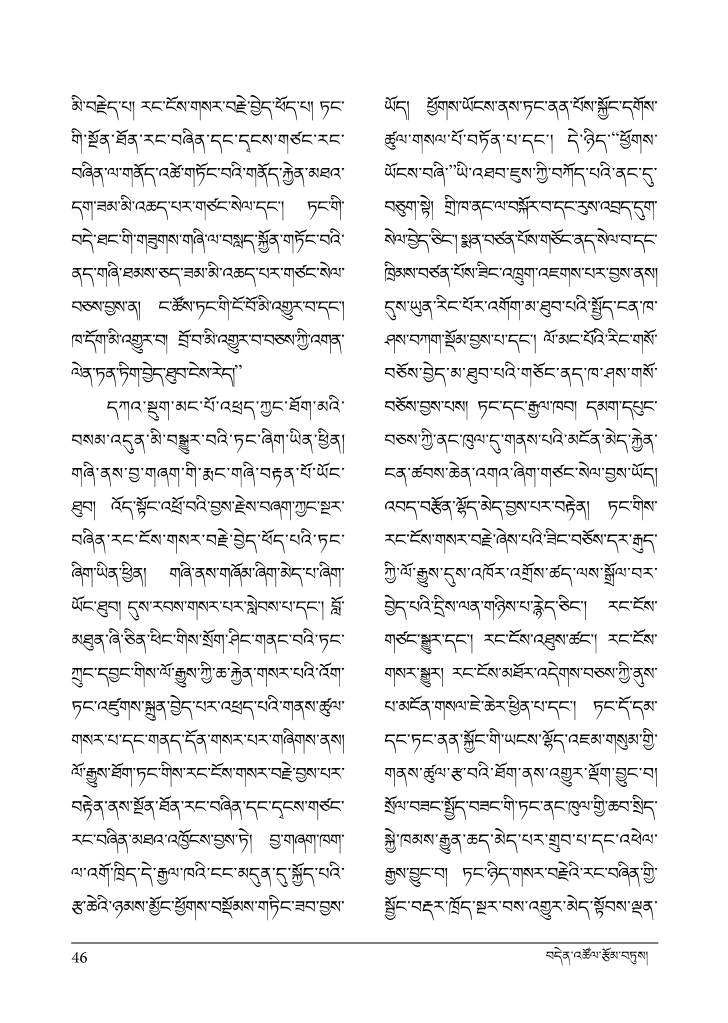 མི་བརྗེད་པ། རང་ངོས་གསར་བརྗེ་བྱེད་ཕོད་པ། ཏང་
གི་སྔོན་ཐོན་རང་བཞིན་དང་དྭངས་གཙང་རང་
བཞིན་ལ་གནོད་འཚེ་གཏོང་བའི་གནོད་རྐྱེན་མཐའ་
དག་ཟམ་མི་འཆད་པར་གཙང་སེལ་དང་། ཏང་གི་
བདེ་ཐང་གི་གཟུགས་གཞི་ལ་བསླད་སྐྱོན་གཏོང་བའི་
ནད་གཞི་ཐམས་ཅད་ཟམ་མི་འཆད་པར་གཙང་སེལ་
བཅས་བྱས་ན། ང་ཚོས་ཏང་གི་ངོ་བོ་མི་འགྱུར་བ་དང་།
ཁ་དོག་མི་འགྱུར་བ། བྲོ་བ་མི་འགྱུར་བ་བཅས་ཀྱི་འགན་
ལེན་ཏན་ཏིག་བྱེད་ཐུབ་ངེས་རེད།”
དཀའ་སྡུག་མང་པོ་འཕྲད་ཀྱང་ཐོག་མའི་
བསམ་འདུན་མི་བསྒྱུར་བའི་ཏང་ཞིག་ཡིན་ཕྱིན།
གཞི་ནས་བྱ་གཞག་གི་རྨང་གཞི་བརྟན་པོ་ཡོང་
ཐུབ། འོད་སྟོང་འཕྲོ་བའི་བྱས་རྗེས་བཞག་ཀྱང་སྔར་
བཞིན་རང་ངོས་གསར་བརྗེ་བྱེད་ཕོད་པའི་ཏང་
ཞིག་ཡིན་ཕྱིན། གཞི་ནས་གཞོམ་ཞིག་མེད་པ་ཞིག་
ཡོང་ཐུབ། དུས་རབས་གསར་པར་སླེབས་པ་དང་། བློ་
མཐུན་ཞི་ཅིན་ཕིང་གིས་སྲོག་ཤིང་གནང་བའི་ཏང་
ཀྲུང་དབྱང་གིས་ལོ་རྒྱུས་ཀྱི་ཆ་རྐྱེན་གསར་པའི་འོག་
ཏང་འཛུགས་སྐྲུན་བྱེད་པར་འཕྲད་པའི་གནས་ཚུལ་
གསར་པ་དང་གནད་དོན་གསར་པར་གཞིགས་ནས།
ལོ་རྒྱུས་ཐོག་ཏང་གིས་རང་ངོས་གསར་བརྗེ་བྱས་པར་
བརྟེན་ནས་སྔོན་ཐོན་རང་བཞིན་དང་དྭངས་གཙང་
རང་བཞིན་མཐའ་འཁྱོངས་བྱས་ཏེ། བྱ་གཞག་ཁག་
ལ་འགོ་ཁྲིད་དེ་རྒྱལ་ཁའི་ངང་མདུན་དུ་སྐྱོད་པའི་
རྩ་ཆེའི་ཉམས་མྱོང་ཕྱོགས་བསྡོམས་གཏིང་ཟབ་བྱས་
ཡོད། ཕྱོགས་ཡོངས་ནས་ཏང་ནན་པོས་སྐྱོང་དགོས་
ཚུལ་གསལ་པོ་བཏོན་པ་དང་། དེ་ཉིད་“ཕྱོགས་
ཡོངས་བཞི་”ཡི་འཐབ་ཇུས་ཀྱི་བཀོད་པའི་ནང་དུ་
བཅུག་སྟེ། གྲི་ཁ་ནང་ལ་བསྐོར་བ་དང་རུས་འབྲད་དུག་
སེལ་བྱེད་ཅིང་། སྨན་བཙན་པོས་གཅོང་ནད་སེལ་བ་དང་
ཁྲིམས་བཙན་པོས་ཟིང་འཁྲུག་འཇགས་པར་བྱས་ནས།
དུས་ཡུན་རིང་པོར་འགོག་མ་ཐུབ་པའི་སྤྱོད་ངན་ཁ་
ཤས་བཀག་སྡོམ་བྱས་པ་དང་། ལོ་མང་པོའི་རིང་གསོ་
བཅོས་བྱེད་མ་ཐུབ་པའི་གཅོང་ནད་ཁ་ཤས་གསོ་
བཅོས་བྱས་པས། ཏང་དང་རྒྱལ་ཁབ། དམག་དཔུང་
བཅས་ཀྱི་ནང་ཁུལ་དུ་གནས་པའི་མངོན་མེད་རྐྱེན་
ངན་ཚབས་ཆེན་འགའ་ཞིག་གཙང་སེལ་བྱས་ཡོད།
འབད་བརྩོན་ལྷོད་མེད་བྱས་པར་བརྟེན། ཏང་གིས་
རང་ངོས་གསར་བརྗེ་ཞེས་པའི་ཟིང་བཅོས་དར་རྒུད་
ཀྱི་ལོ་རྒྱུས་དུས་འཁོར་འགྲོས་ཚད་ལས་སྒྲོལ་བར་
བྱེད་པའི་དྲིས་ལན་གཉིས་པ་རྙེད་ཅིང་། རང་ངོས་
གཙང་སྒྱུར་དང་། རང་ངོས་འཐུས་ཚང་། རང་ངོས་
གསར་སྒྱུར། རང་ངོས་མཐོར་འདེགས་བཅས་ཀྱི་ནུས་
པ་མངོན་གསལ་ཇེ་ཆེར་ཕྱིན་པ་དང་། ཏང་དོ་དམ་
དང་ཏང་ནན་སྐྱོང་གི་ཡངས་ལྷོད་འཇམ་གསུམ་གྱི་
གནས་ཚུལ་རྩ་བའི་ཐོག་ནས་འགྱུར་ལྡོག་བྱུང་བ།
སྲོལ་བཟང་སྤྱོད་བཟང་གི་ཏང་ནང་ཁུལ་གྱི་ཆབ་སྲིད་
སྐྱེ་ཁམས་རྒྱུན་ཆད་མེད་པར་གྲུབ་པ་དང་འཕེལ་
རྒྱས་བྱུང་བ། ཏང་ཉིད་གསར་བརྗེའི་རང་བཞིན་གྱི་
སྦྱོང་བརྡར་ཁྲོད་སྔར་བས་འགྱུར་མེད་སྟོབས་ལྡན་
46
བདེན་འཚོལ་རྩོམ་བཏུས།